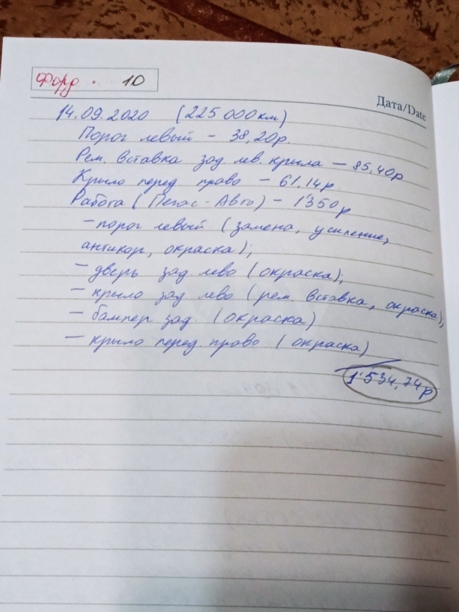 Форд . 10
Дата/Date
14.09.2020 (225 000км)
Порог левый - 38,20р.
Рем. вставка зад. лев. крыла - 85,40р
Крыло перед. право - 61,14р
Работа (Пегас-Авто) - 1'350р
- порог левый (замена, усиление,
антикор, окраска);
- дверь зад лево (окраска),
- крыло зад лево (рем. вставка, окраска),
- бампер зад (окраска)
- крыло перед. право (окраска)
1'534,74р